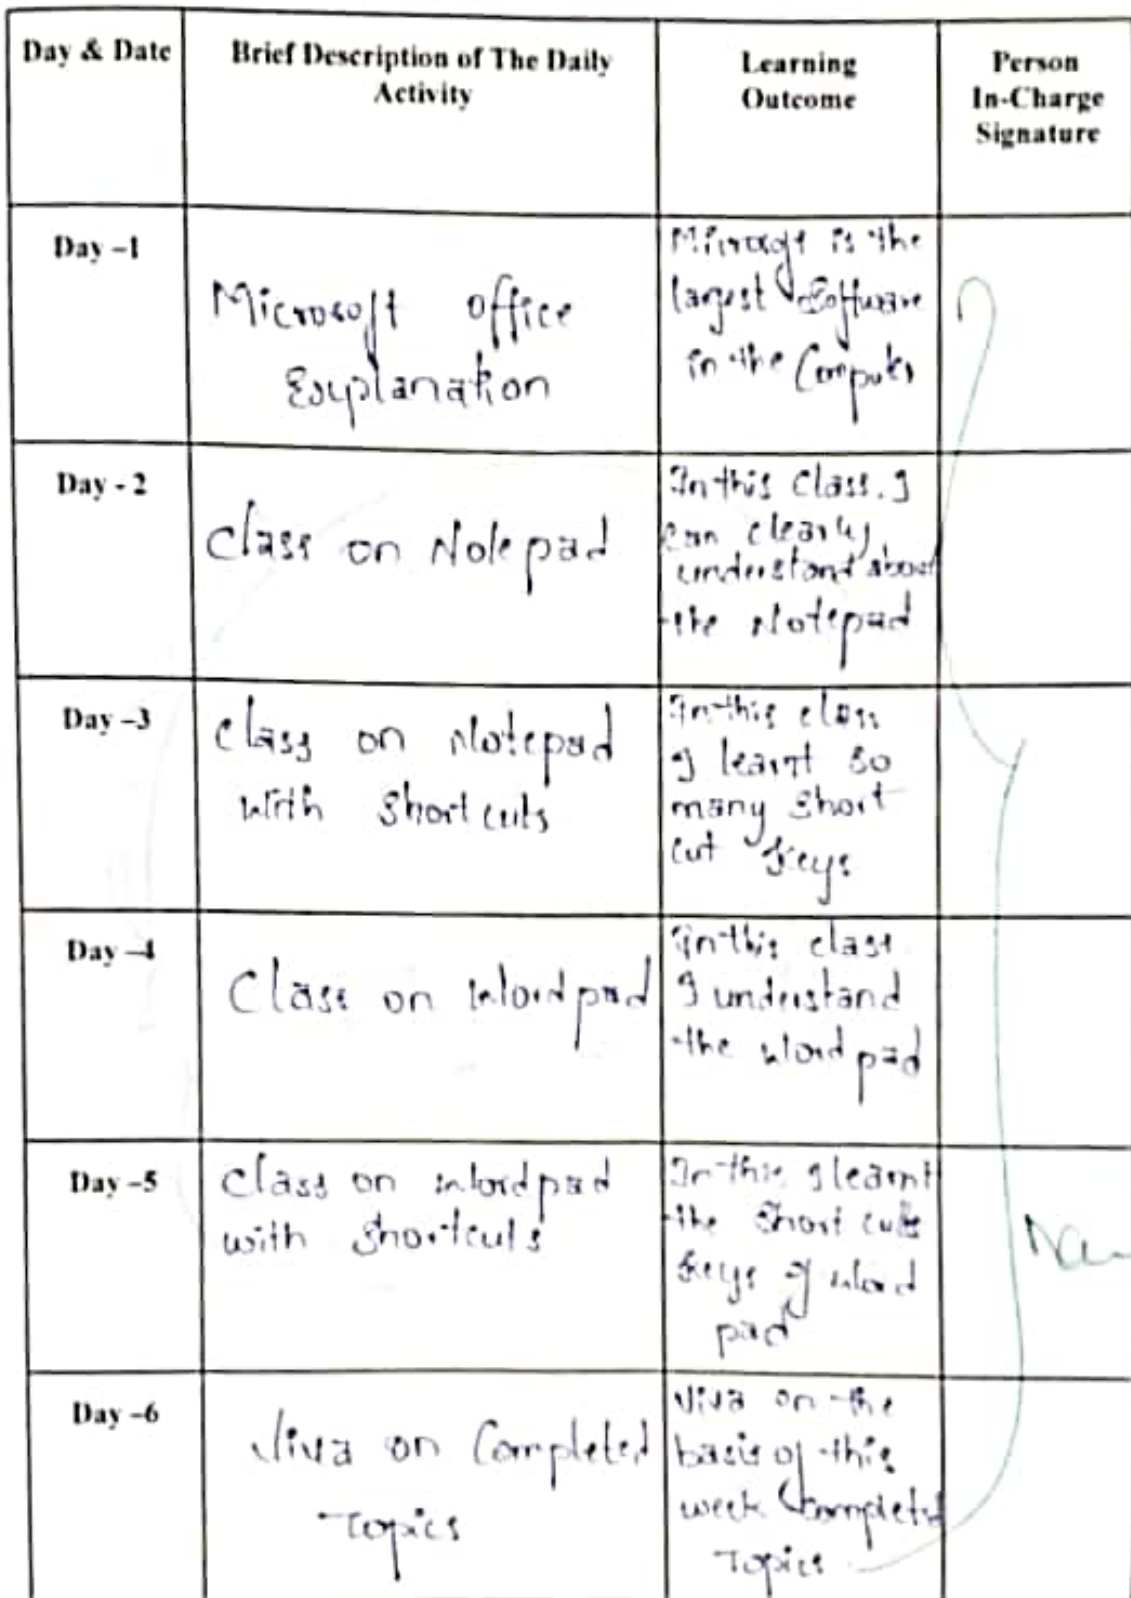 Day & Date
Brief Description of The Daily
Activity
Learning
Outcome
Person
In-Charge
Signature
Day –1
Microsoft office
Explanation
Microsoft is the
largest Software
in the Computer
Day - 2
Class on Notepad
In this Class. I
can clearly
understand about
the Notepad
Day –3
Class on Notepad
with Shortcuts
In this class
I learnt so
many Short
cut keys
Day –4
Class on Wordpad
In this class
I understand
the Wordpad
Day –5
Class on Wordpad
with Shortcuts
In this I learnt
the Short cuts
keys of Word
pad
Day –6
Viva on Completed
Topics
Viva on the
basis of this
week Completed
Topics